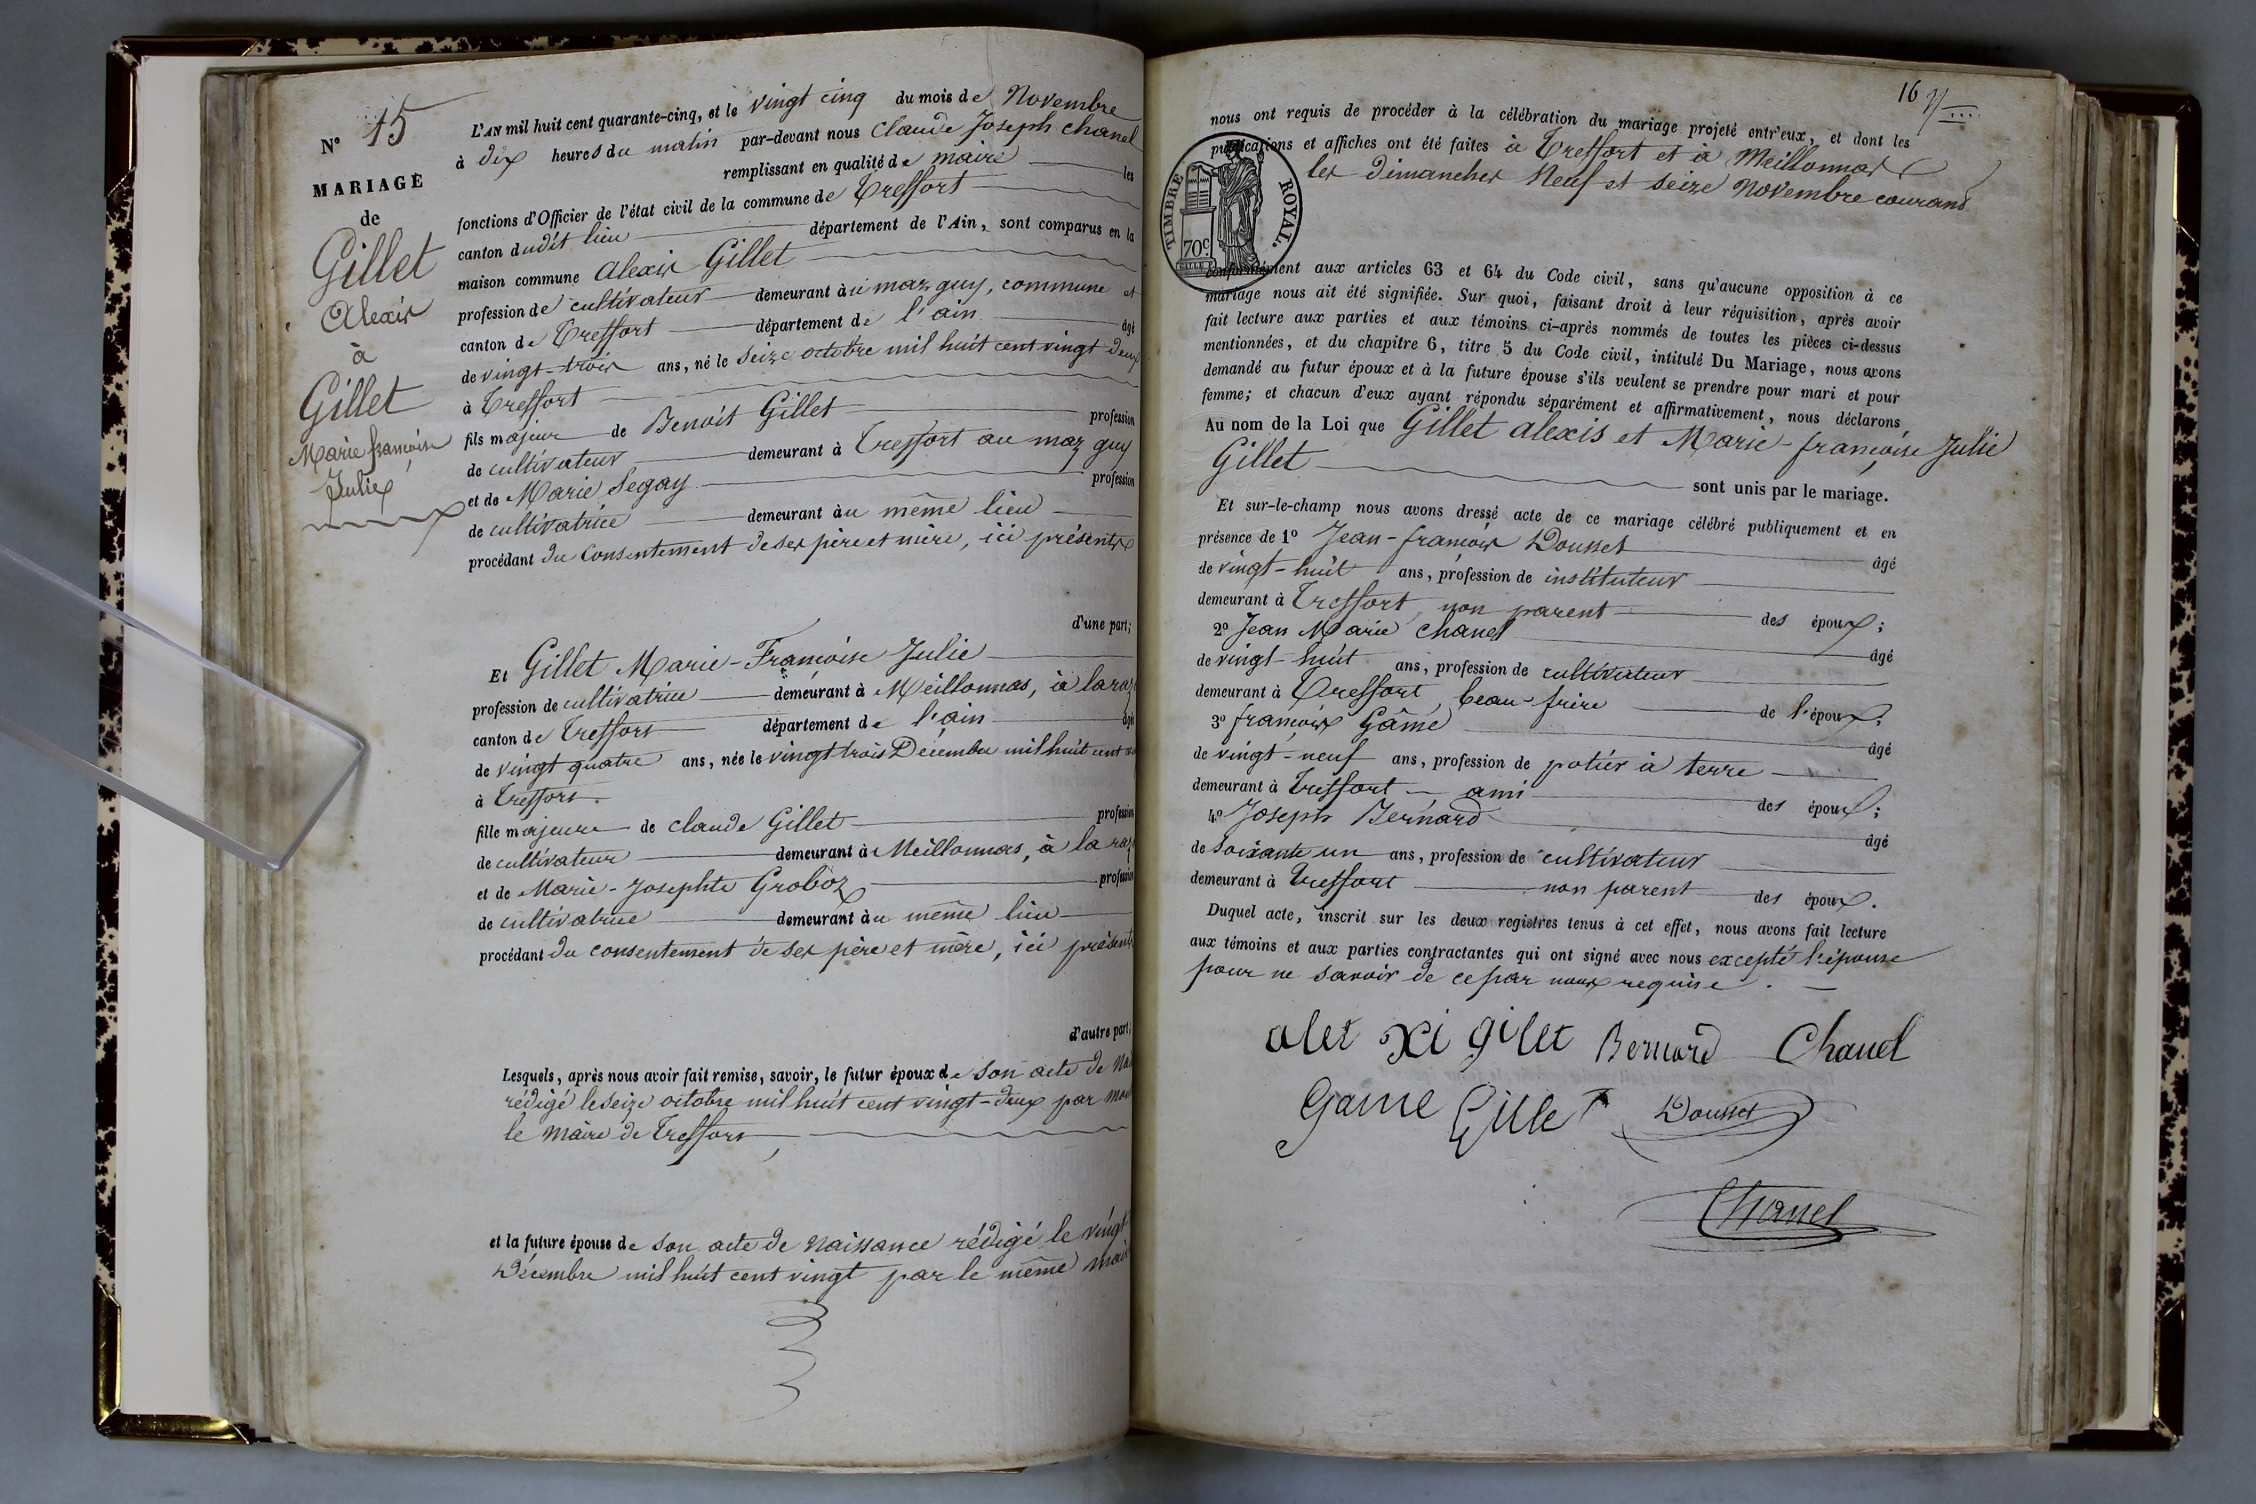 N° 15
MARIAGE
de
Gillet
Alexis
à
Gillet
Marie françoise
Julie
L'AN mil huit cent quarante-cinq, et le vingt cinq du mois de Novembre
à dix heures du matin par-devant nous Claude Joseph Chanel
remplissant en qualité de maire les
fonctions d'Officier de l'état civil de la commune de Treffort
canton dudit lieu département de l'Ain, sont comparus en la
maison commune Alexis Gillet
profession de cultivateur demeurant au maz guy, commune et
canton de Treffort département de l'ain âgé
de vingt-trois ans, né le seize octobre mil huit cent vingt deux
à Treffort
fils majeur de Benoit Gillet profession
de cultivateur demeurant à Treffort au maz guy
et de Marie Segay profession
de cultivatrice demeurant au même lieu
procédant du Consentement de ses père et mère, ici présents
d'une part;
Et Gillet Marie-Françoise Julie
profession de cultivatrice demeurant à Meillonnas, à la raz
canton de Treffort département de l'ain âgée
de vingt quatre ans, née le vingt trois Décembre mil huit cent
à Treffort.
fille majeure de claude Gillet profession
de cultivateur demeurant à Meillonnas, à la raz
et de Marie-Josephte Groboz profession
de cultivatrice demeurant au même lieu
procédant du consentement de ses père et mère, ici présents
d'autre part;
Lesquels, après nous avoir fait remise, savoir, le futur époux de son acte de
rédigé le seize octobre mil huit cent vingt-deux par
le maire de Treffort,
et la future épouse de son acte de Naissance rédigé le vingt
Décembre mil huit cent vingt par le même
16
nous ont requis de procéder à la célébration du mariage projeté entr'eux, et dont les
publications et affiches ont été faites à Treffort et à Meillonnas
les dimanches Neuf et seize Novembre courant
TIMBRE ROYAL.
70c
conformément aux articles 63 et 64 du Code civil, sans qu'aucune opposition à ce
mariage nous ait été signifiée. Sur quoi, faisant droit à leur réquisition, après avoir
fait lecture aux parties et aux témoins ci-après nommés de toutes les pièces ci-dessus
mentionnées, et du chapitre 6, titre 5 du Code civil, intitulé Du Mariage, nous avons
demandé au futur époux et à la future épouse s'ils veulent se prendre pour mari et pour
femme; et chacun d'eux ayant répondu séparément et affirmativement, nous déclarons,
Au nom de la Loi que Gillet alexis et Marie-françoise Julie
Gillet sont unis par le mariage.
Et sur-le-champ nous avons dressé acte de ce mariage célébré publiquement et en
présence de 1° Jean-françois Dousset âgé
de vingt-huit ans, profession de instituteur
demeurant à Treffort, non parent des époux;
2° Jean Marie Chanel âgé
de vingt-huit ans, profession de cultivateur
demeurant à Treffort, beau-frère de l'époux;
3° françois Gâme âgé
de vingt-neuf ans, profession de potier à terre
demeurant à Treffort, ami des époux;
4° Joseph Bernard âgé
de soixante un ans, profession de cultivateur
demeurant à Treffort non parent des époux.
Duquel acte, inscrit sur les deux registres tenus à cet effet, nous avons fait lecture
aux témoins et aux parties contractantes qui ont signé avec nous excepté l'épouse
pour ne savoir de ce par nous requise.
alet xi gilet Bernard Chanel
Game Gillet Dousset
Chanel